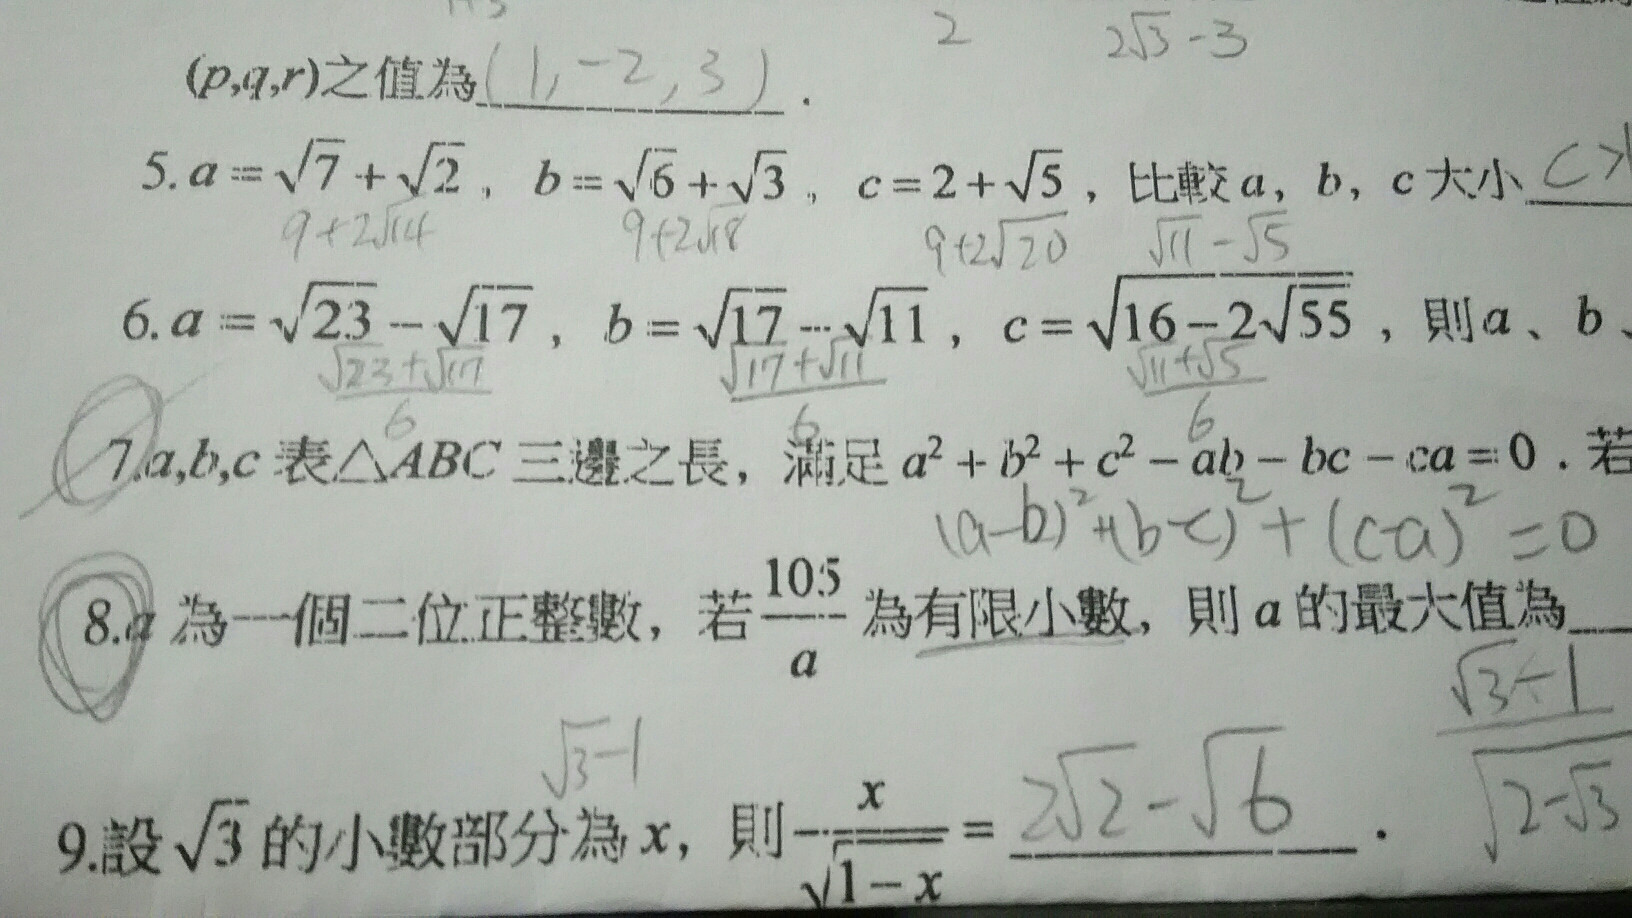 2 2√3-3
(p,q,r)之值為(1,-2,3).
5. a=√7+√2, b=√6+√3, c=2+√5, 比較a, b, c大小 c>
9+2√14 9+2√18 9+2√20 √11-√5
6. a=√23-√17, b=√17-√11, c=√(16-2√55), 則a、b、
√23+√17 √17+√11 √11+√5
6 6 6
7.a,b,c 表△ABC 三邊之長, 滿足 a²+b²+c²-ab-bc-ca=0. 若
(a-b)²+(b-c)²+(c-a)²=0
8.a 為一個二位正整數, 若 105/a 為有限小數, 則 a 的最大值為
√3-1
9.設√3的小數部分為 x, 則 x/√(1-x) = 2√2-√6.
√3-1/√(2-√3)